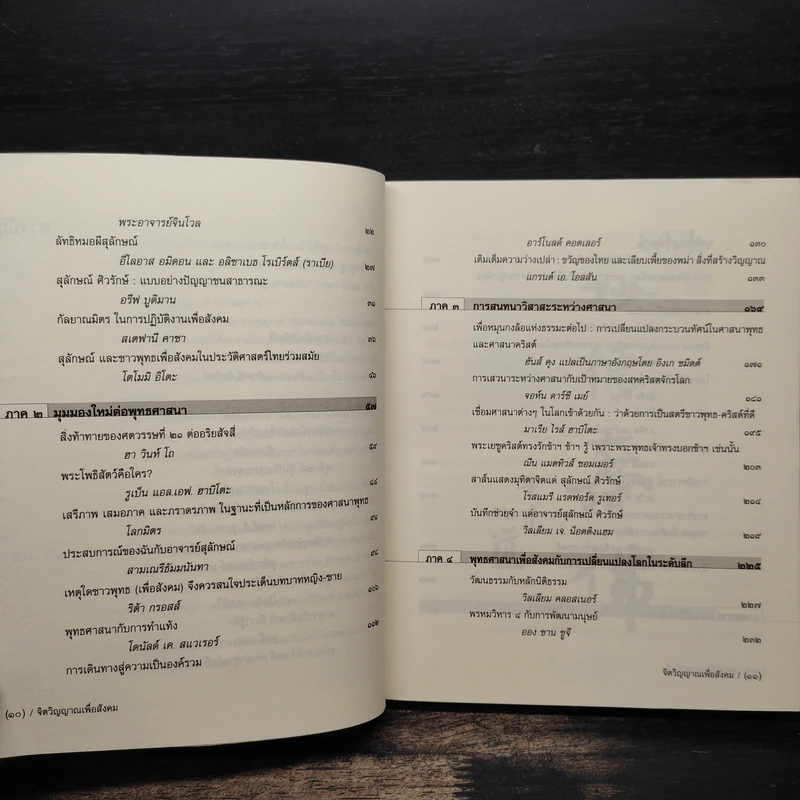 พระอาจารย์จินโวล
๒๒
ลัทธิหมอผีสุลักษณ์
อีไลอาส อมิดอน และ อลิซาเบธ โรเบิร์ตส์ (ราเบีย)
๒๗
สุลักษณ์ ศิวรักษ์ : แบบอย่างปัญญาชนสาธารณะ
อรีฟ บูดิมาน
๓๑
กัลยาณมิตร ในการปฏิบัติงานเพื่อสังคม
สเตฟานี คาซา
๓๖
สุลักษณ์ และชาวพุทธเพื่อสังคมในประวัติศาสตร์ไทยร่วมสมัย
โตโมมิ อีโตะ
๔๖
ภาค ๒ มุมมองใหม่ต่อพุทธศาสนา ๕๗
สิ่งท้าทายของศตวรรษที่ ๒๑ ต่ออริยสัจสี่
ฮา วินห์ โถ
๕๙
พระโพธิสัตว์คือใคร?
รูเบ็น แอล.เอฟ. ฮาบิโตะ
๘๘
เสรีภาพ เสมอภาค และภราดรภาพ ในฐานะที่เป็นหลักการของศาสนาพุทธ
โลกมิตร
๙๑
ประสบการณ์ของฉันกับอาจารย์สุลักษณ์
สามเณรีธัมมนันทา
๙๘
เหตุใดชาวพุทธ (เพื่อสังคม) จึงควรสนใจประเด็นบทบาทหญิง-ชาย
ริต้า กรอสส์
๑๐๖
พุทธศาสนากับการทำแท้ง
โดนัลด์ เค. สแวเรอร์
๑๑๒
การเดินทางสู่ความเป็นองค์รวม
(๑๐) / จิตวิญญาณเพื่อสังคม
อาร์โนลด์ คอตเลอร์
๑๓๐
เติมเต็มความว่างเปล่า : ขวัญของไทย และเลียบเพี้ยของพม่า สิ่งที่สร้างวิญญาณ
แกรนต์ เอ. โอลสัน
๑๓๓
ภาค ๓ การสนทนาวิสาสะระหว่างศาสนา ๑๖๙
เพื่อหมุนกงล้อแห่งธรรมะต่อไป : การเปลี่ยนแปลงกระบวนทัศน์ในศาสนาพุทธ
และศาสนาคริสต์
ฮันส์ คุง แปลเป็นภาษาอังกฤษโดย อิงเก ชมิดต์
๑๗๑
การเสวนาระหว่างศาสนากับเป้าหมายของสหคริสตจักรโลก
จอห์น ดาร์ซี เมย์
๑๘๑
เชื่อมศาสนาต่างๆ ในโลกเข้าด้วยกัน : ว่าด้วยการเป็นสตรีชาวพุทธ-คริสต์ที่ดี
มาเรีย ไรส์ ฮาบิโตะ
๑๙๕
พระเยซูคริสต์ทรงรักข้าฯ ข้าฯ รู้ เพราะพระพุทธเจ้าทรงบอกข้าฯ เช่นนั้น
ฌีน แมตทิวส์ ซอมเมอร์
๒๐๓
สาส์นแสดงมุทิตาจิตแด่ สุลักษณ์ ศิวรักษ์
โรสแมรี แรดฟอร์ด รูเทอร์
๒๑๔
บันทึกช่วยจำ แด่อาจารย์สุลักษณ์ ศิวรักษ์
วิลเลียม เจ. น็อตติงแฮม
๒๑๙
ภาค ๔ พุทธศาสนาเพื่อสังคมกับการเปลี่ยนแปลงโลกในระดับลึก ๒๒๕
วัฒนธรรมกับหลักนิติธรรม
วิลเลียม คลอสเนอร์
๒๒๗
พรหมวิหาร ๔ กับการพัฒนามนุษย์
ออง ซาน ซูจี
๒๓๒
จิตวิญญาณเพื่อสังคม / (๑๑)